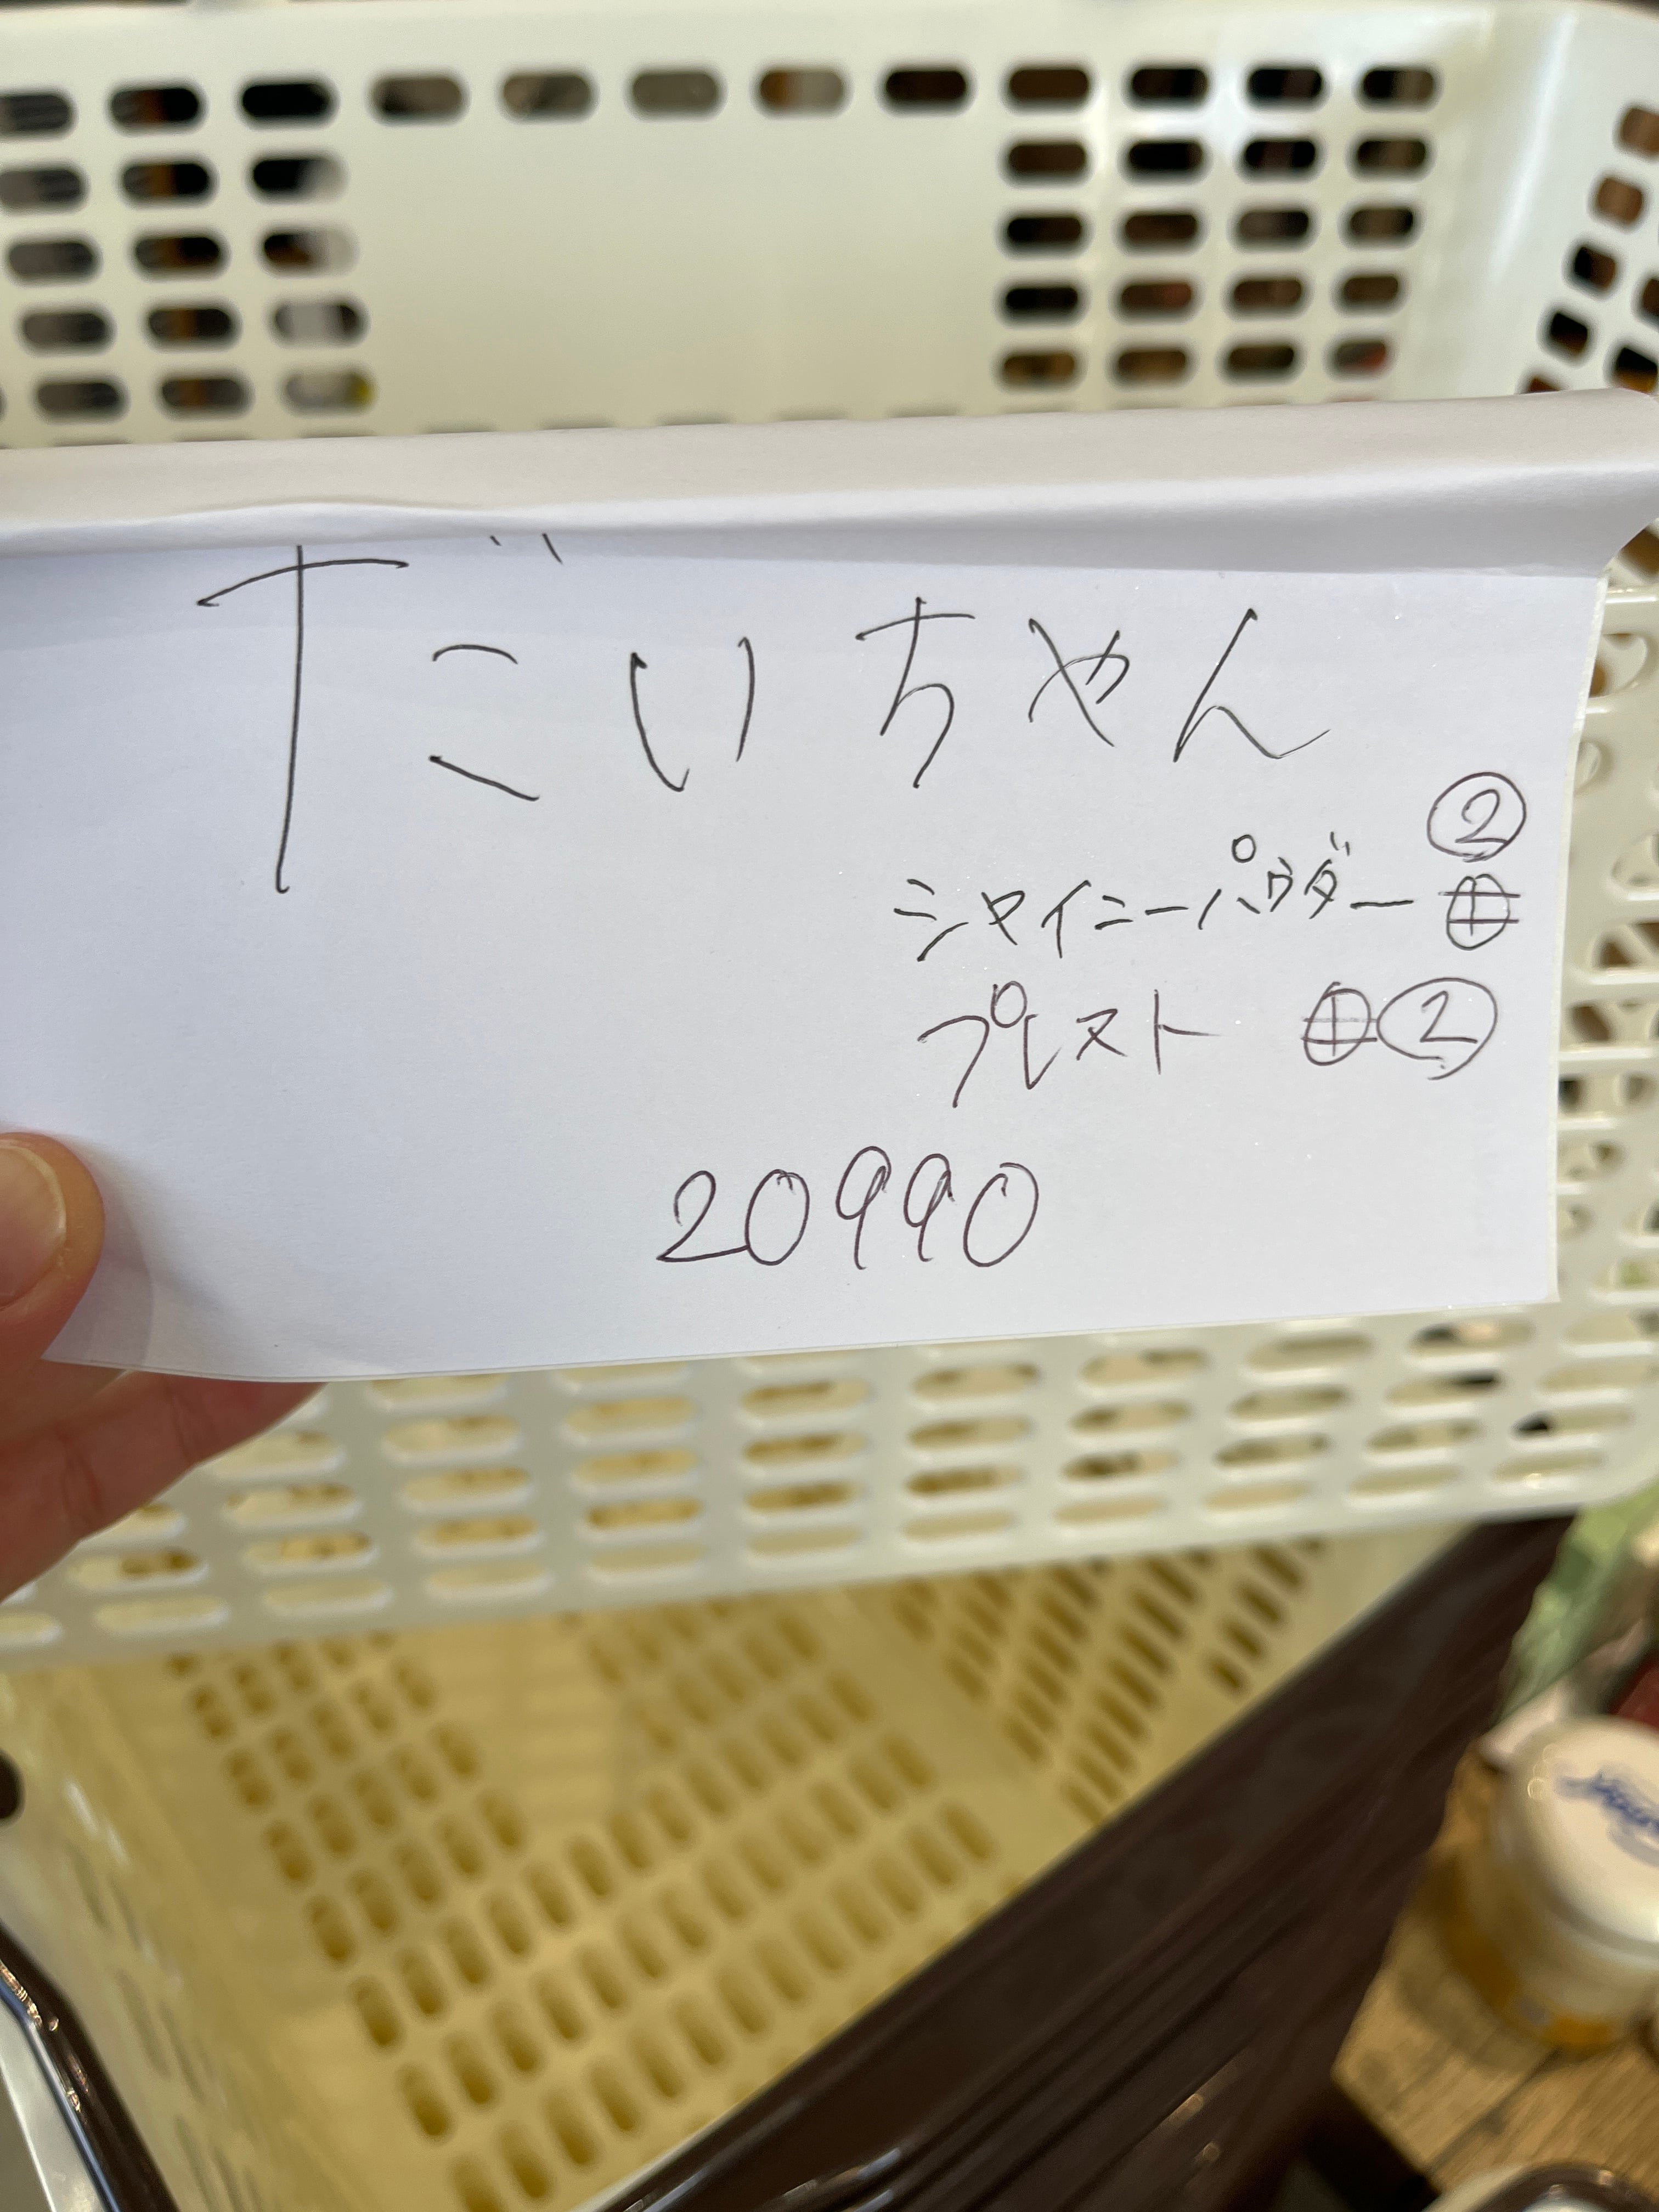 だいちゃん
②
シャイニーパウダー ①
プレスト ① ②
20990